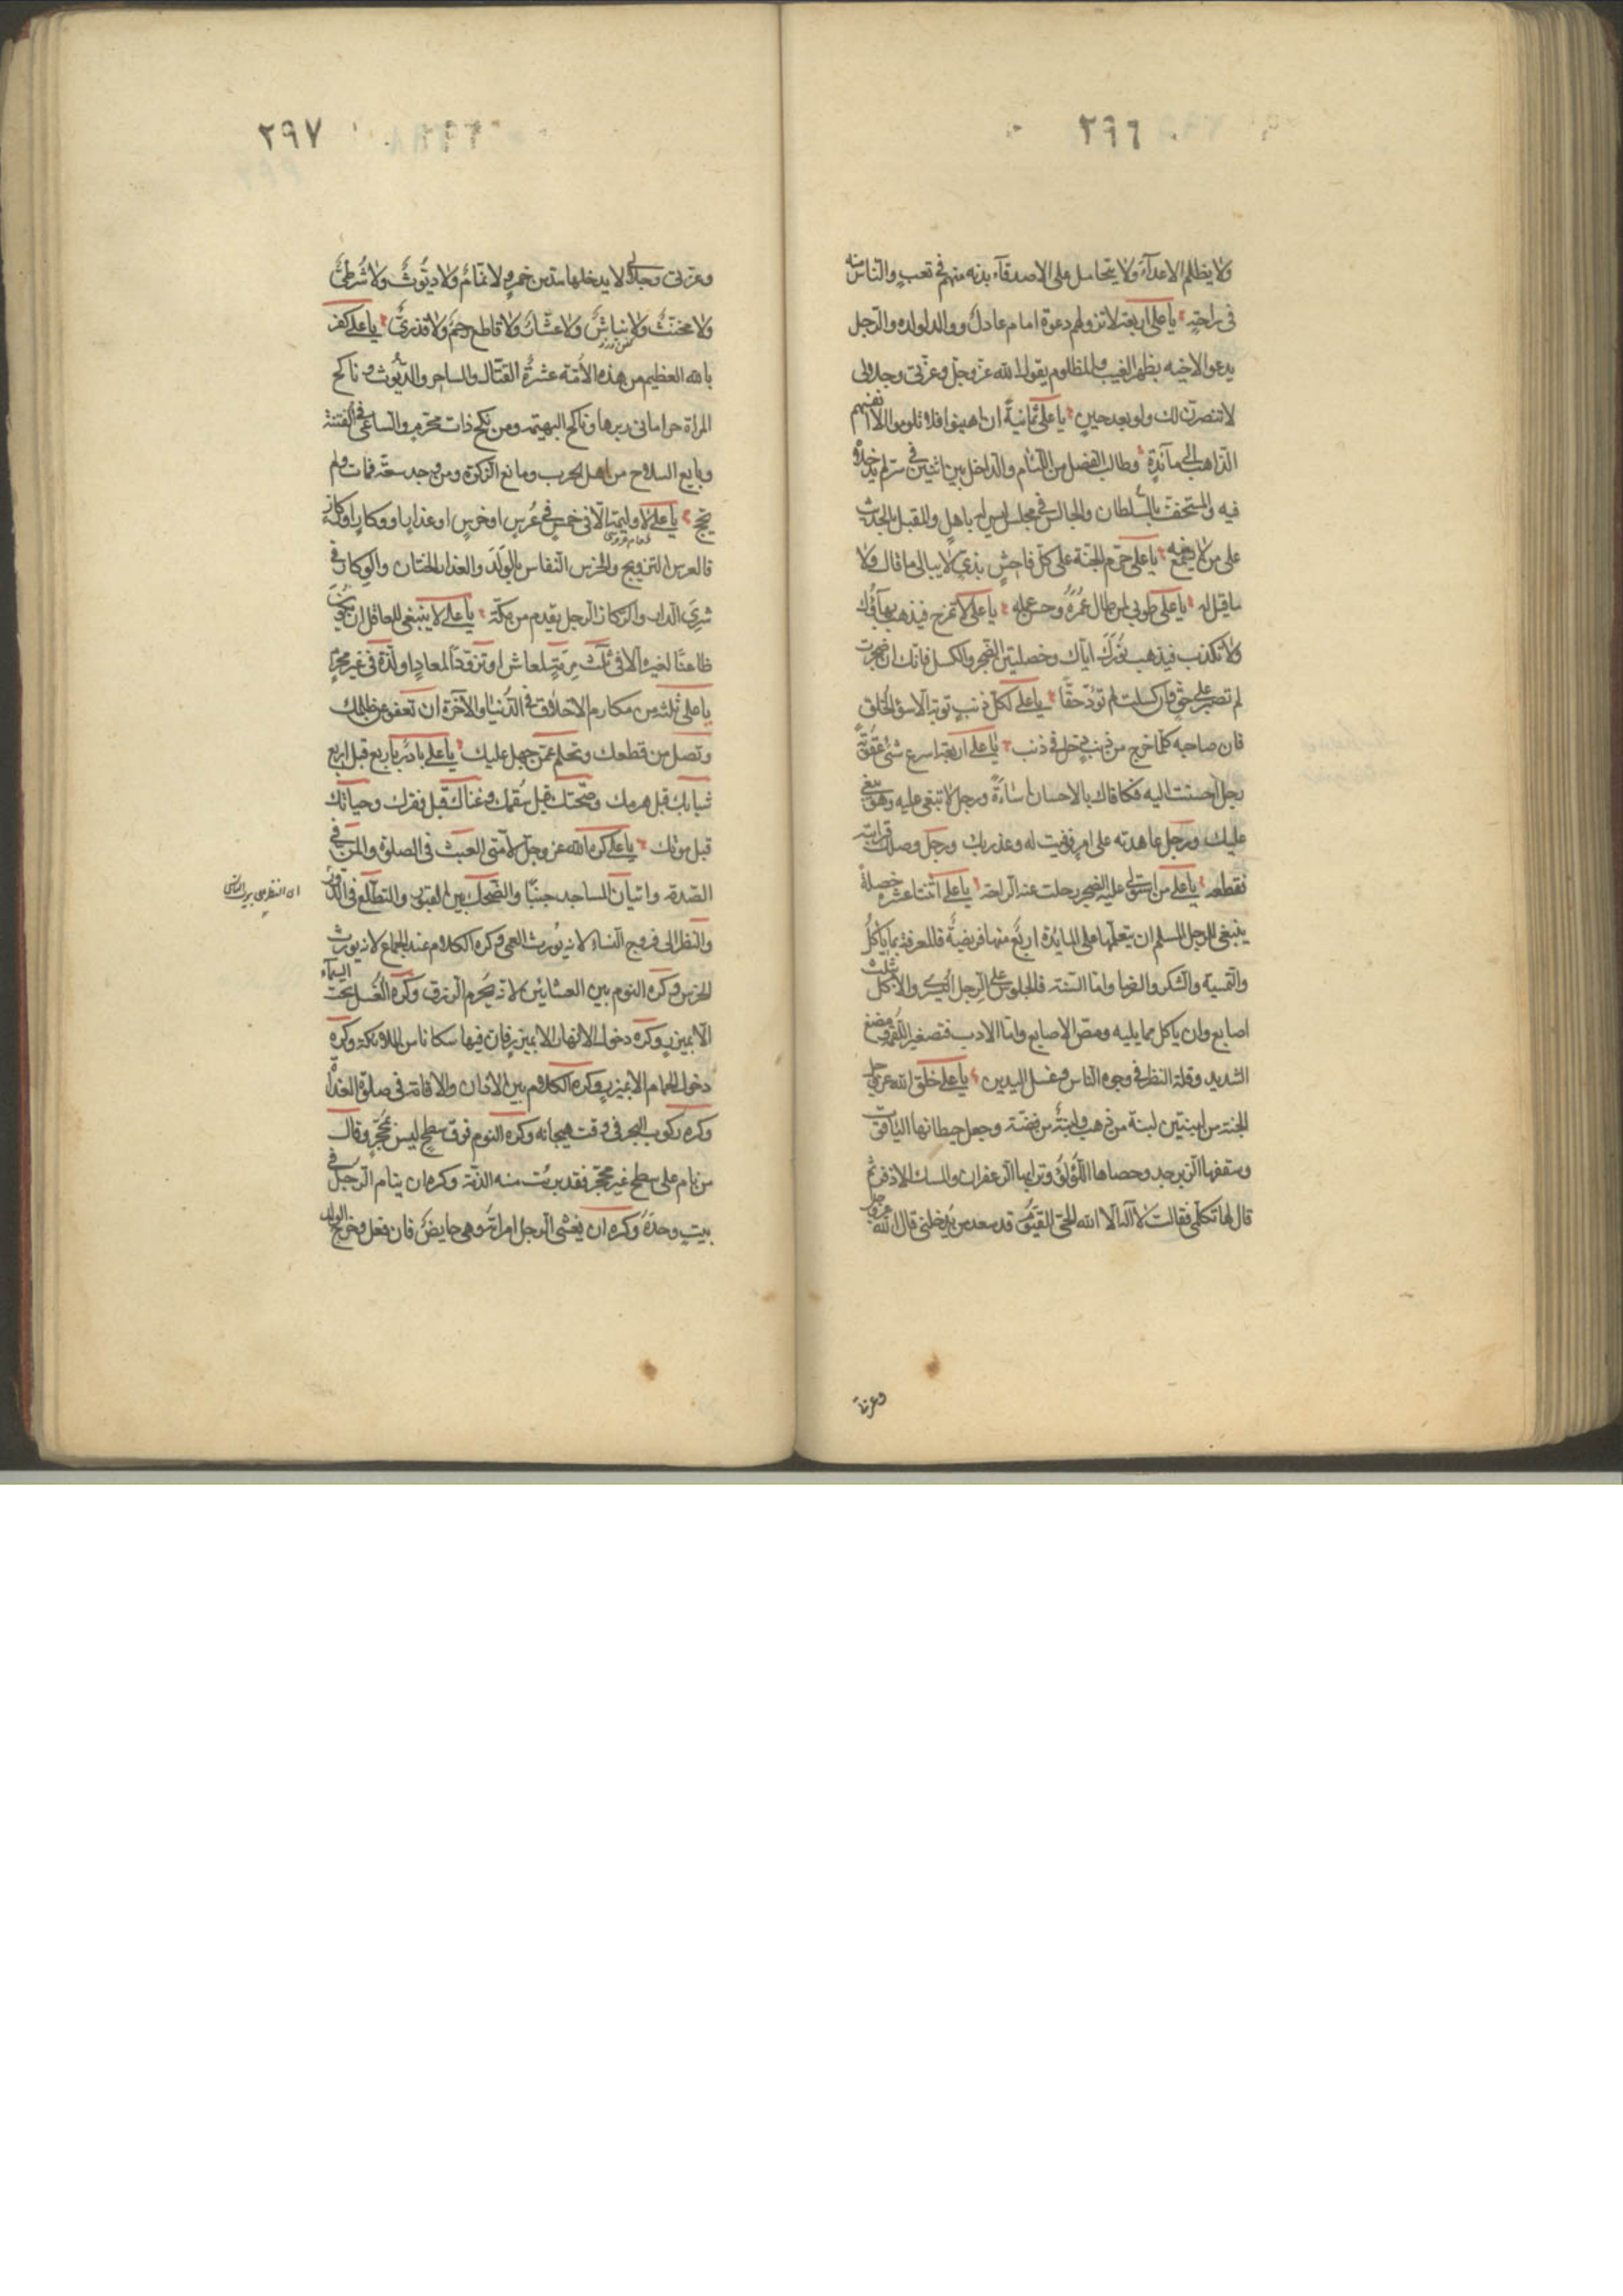 ٢٩٦
ولا يظلم الاعداء ولا يتحامل على الاصدقاء بدنه منهم في تعب والناس منه
في راحة يا على اربعة لا تردّ لهم دعوة امام عادل ووالد لولده والرجل
يدعو لاخيه بظهر الغيب والمظلوم يقول الله عز وجل وعزتي وجلالى
لانتصرن لك ولو بعد حين يا على ثمانية ان اهينوا فلا تلوموا الا انفسهم
الذاهب الى مائدة وطالب الفضل من اللئام والداخل بين اثنين في سر لم يدخلاه
فيه والمستخف بالسلطان والجالس في مجلس ليس له باهل والمقبل بالحديث
على من لا يسمع منه يا على حرم الجنة على كل فاحش بذى لا يبالى ما قال ولا
ما قيل له يا على طوبى لمن طال عمره وحسن عمله يا على لا تمزح فيذهب بهاؤك
ولا تكذب فيذهب نورك اياك وخصلتين الضجر والكسل فانك ان ضجرت
لم تصبر على حق وان كسلت لم تؤد حقا يا على لكل ذنب توبة الا سوء الخلق
فان صاحبه كلما خرج من ذنب دخل في ذنب يا على اربعة اسرع شئ عقوبة
رجل احسنت اليه فكافاك بالاحسان اساءة ورجل لا تبغى عليه وهو يبغى
عليك ورجل عاهدته على امر فوفيت له وغدر بك ورجل وصل قرابته
فقطعه يا على من استولى عليه الضجر رحلت عنه الراحة يا على اثنتا عشرة خصلة
ينبغى للرجل المسلم ان يتعلمها على المائدة اربع منها فريضة فالمعرفة بما ياكل
والتسمية والشكر والرضا واما السنة فالجلوس على الرجل اليسرى والاكل بثلث
اصابع وان ياكل مما يليه ومص الاصابع واما الادب فتصغير اللقمة والمضغ
الشديد وقلة النظر في وجوه الناس وغسل اليدين يا على خلق الله عز وجل
الجنة من لبنتين لبنة من ذهب ولبنة من فضة وجعل حيطانها الياقوت
وسقفها الزبرجد وحصاها اللؤلؤ وترابها الزعفران والمسك الاذفر ثم
قال لها تكلمى فقالت لا اله الا الله الحى القيوم قد سعد من يدخلنى قال الله عز وجل
وعزتي
٢٩٧
وعزتى وجلالى لا يدخلها مدمن خمر ولا نمام ولا ديوث ولا شرطى
ولا مخنث ولا نباش ولا عشار ولا قاطع رحم ولا قدرى يا على كفر
بالله العظيم من هذه الامة عشرة القتال والساحر والديوث وناكح
المراة حراما في دبرها وناكح البهيمة ومن نكح ذات محرم والساعى في الفتنة
وبايع السلاح من اهل الحرب ومانع الزكوة ومن وجد سعة فمات ولم
يحج يا على لا وليمة الا في خمس في عرس او خرس او عذار او وكار او ركاز
فالعرس التزويج والخرس النفاس بالولد والعذار الختان والوكار في
شرى الدار والركاز الرجل يقدم من مكة يا على لا ينبغى للعاقل ان يكون
ظاعنا لغير الا في ثلث مرمة لمعاش او تزود لمعاد او لذة في غير محرم
يا على ثلثة من مكارم الاخلاق في الدنيا والآخرة ان تعفو عمن ظلمك
وتصل من قطعك وتحلم عمن جهل عليك يا على بادر باربع قبل اربع
شبابك قبل هرمك وصحتك قبل سقمك وغناك قبل فقرك وحياتك
قبل موتك يا على كره الله عز وجل لامتى العبث في الصلوة والمن في
الصدقة واتيان المساجد جنبا والضحك بين القبور والتطلع في الدور
والنظر الى فروج النساء لانه يورث العمى وكره الكلام عند الجماع لانه يورث
الخرس وكره النوم بين العشائين لانه يحرم الرزق وكره الغسل تحت السماء
الا بميزر وكره دخول الانهار الا بميزر فان فيها سكانا من الملائكة وكره
دخول الحمام الا بميزر وكره الكلام بين الاذان والاقامة في صلوة الغداة
وكره ركوب البحر في وقت هيجانه وكره النوم فوق سطح ليس بمحجر وقال
من نام على سطح غير محجر فقد برئت منه الذمة وكره ان ينام الرجل في
بيت وحده وكره ان يغشى الرجل امراته وهى حايض فان فعل وخرج الولد